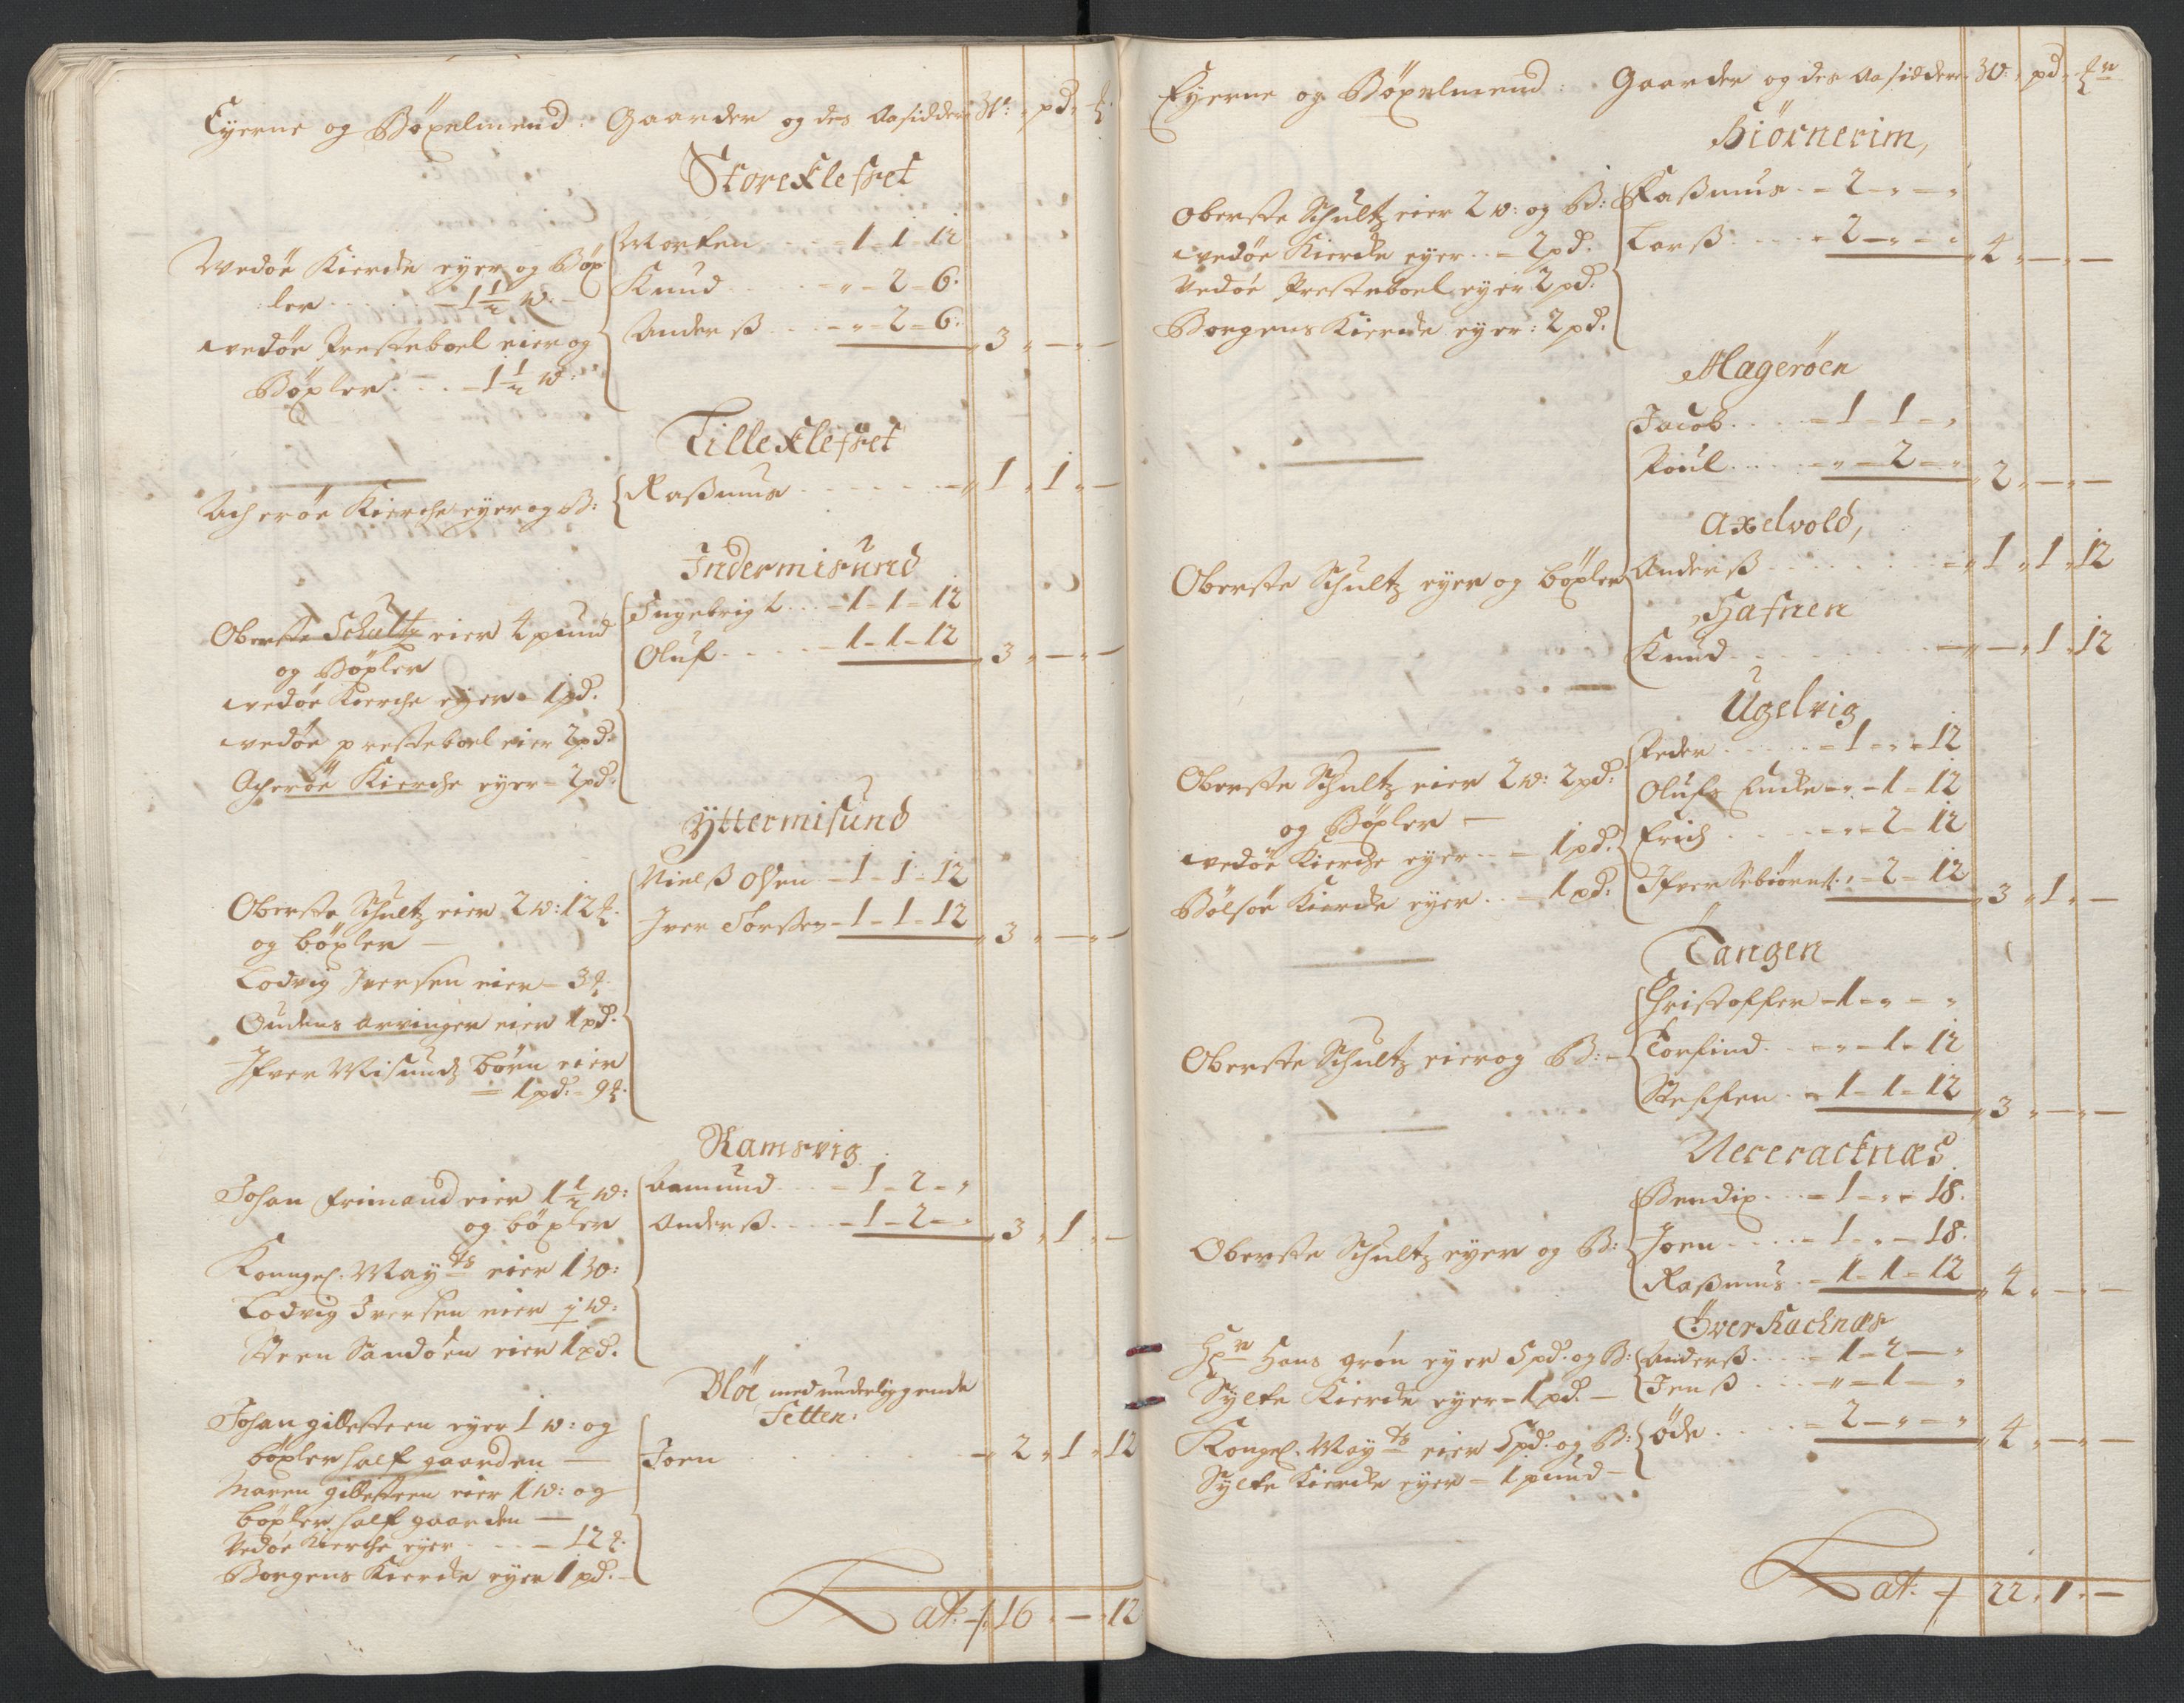 Eyerne og Böxelmend: Gaarder og des Aasidder W: pd
Storeklefset
Vedöe Kierche eyer og Böx
ler 1 1/2 w:
Vedöe Presteboel eier og
Böxler 1 1/2 w:
Morten 1 - 1 - 12
Knud " - 2 - 6
Anderß " - 2 - 6
3 " — " —
Lilleklefset
Acheröe Kierche eyer og B:
Raßmus 1 " 1 " —
Indermisund
Oberste Schultz eier 4 pund
og Böxler
Vedöe Kierche eyer 1 pd.
Vedöe presteboel eier 2 pd:
Acheröe Kierche eyer 2 pd:
Ingebrigt 1 - 1 - 12
Oluf 1 - 1 - 12
3 " — " —
Yttermisund
Oberste Schultz eier 2 w: 12
og böxler —
Lodvig Iversen eier 3
Oudens arvinger eier 1 pd.
Ifver Misunds börn eier
1 pd: 9
Nielß Olsen 1 - 1 - 12
Iver Torßen 1 - 1 - 12
3 " — " —
Ramsvig
Johan Frimand eier 1 1/2 w:
og böxler
Konngel. Mayts eier 1 W:
Lodvig Iversen eier 1/2 w:
Steen Sandöen eier 1 pd.
Aamund 1 - 2 - "
Anderß 1 - 2 - "
3 " 1 " —
Blöe med underliggende
Setter:
Johan gillesteen eyer 1 w: og
böxler half gaarden —
Maren gillesteen eier 1 w: og
böxler half gaarden —
Vedöe Kierche eyer 12
Borgens Kierche eyer 1 pd. —
Joen 2 " 1 " 12
Lat. 16 " — " 12
Eyerne og Böxelmend: Gaarder og des Aasiddere W: pd
Biörnerim,
Oberste Schultz eier 2 w: og B:
Vedöe Kierche eyer 2 pd.
Vedöe Presteboel eyer 2 pd:
Borgens Kierche eyer: 2 pd.
Raßmus 2 - " - "
Larß 2 - " - "
4 " — " —
Mageröen
Jacob 1 - 1 - "
Poul " - 2 - "
2 " — " —
Axelvold,
Oberste Schultz eyer og böxler
Anderß 1 " 1 " 12
Hafnen
Knud — " 1 " 12
Ugelvig
Oberste Schultz eier 2 w: 2 pd:
og Böxler —
Vedöe Kierche eyer 1 pd.
Bölsöe Kierche eyer 1 pd:
Peder 1 - " - 12
Olufs Encke " - 1 - 12
Erich " - 2 - 12
Ifver Sebiörns: " - 2 - 12
3 " 1 " —
Tangen
Oberste Schultz eier og B:
Christoffer 1 - " - "
Torfind " - 1 - 12
Steffen 1 - 1 - 12
3 " — " —
Nereracknæs
Oberste Schultz eyer og B:
Bendix 1 - " - 18.
Joen 1 - " - 18.
Raßmus 1 - 1 - 12
4 " — " —
Överracknæs
Hans grön eyer 5 pd. og B:
Sylte Kierche eyer 1 pd. —
Kongel. Mayts eier 5 pd. og B:
Sylte Kierche eyer 1 pund —
Anderß 1 - 2 - "
Jenß " - 1 - "
Öde 2 - " - "
4 " — " —
Lat. 22 " 1 " —